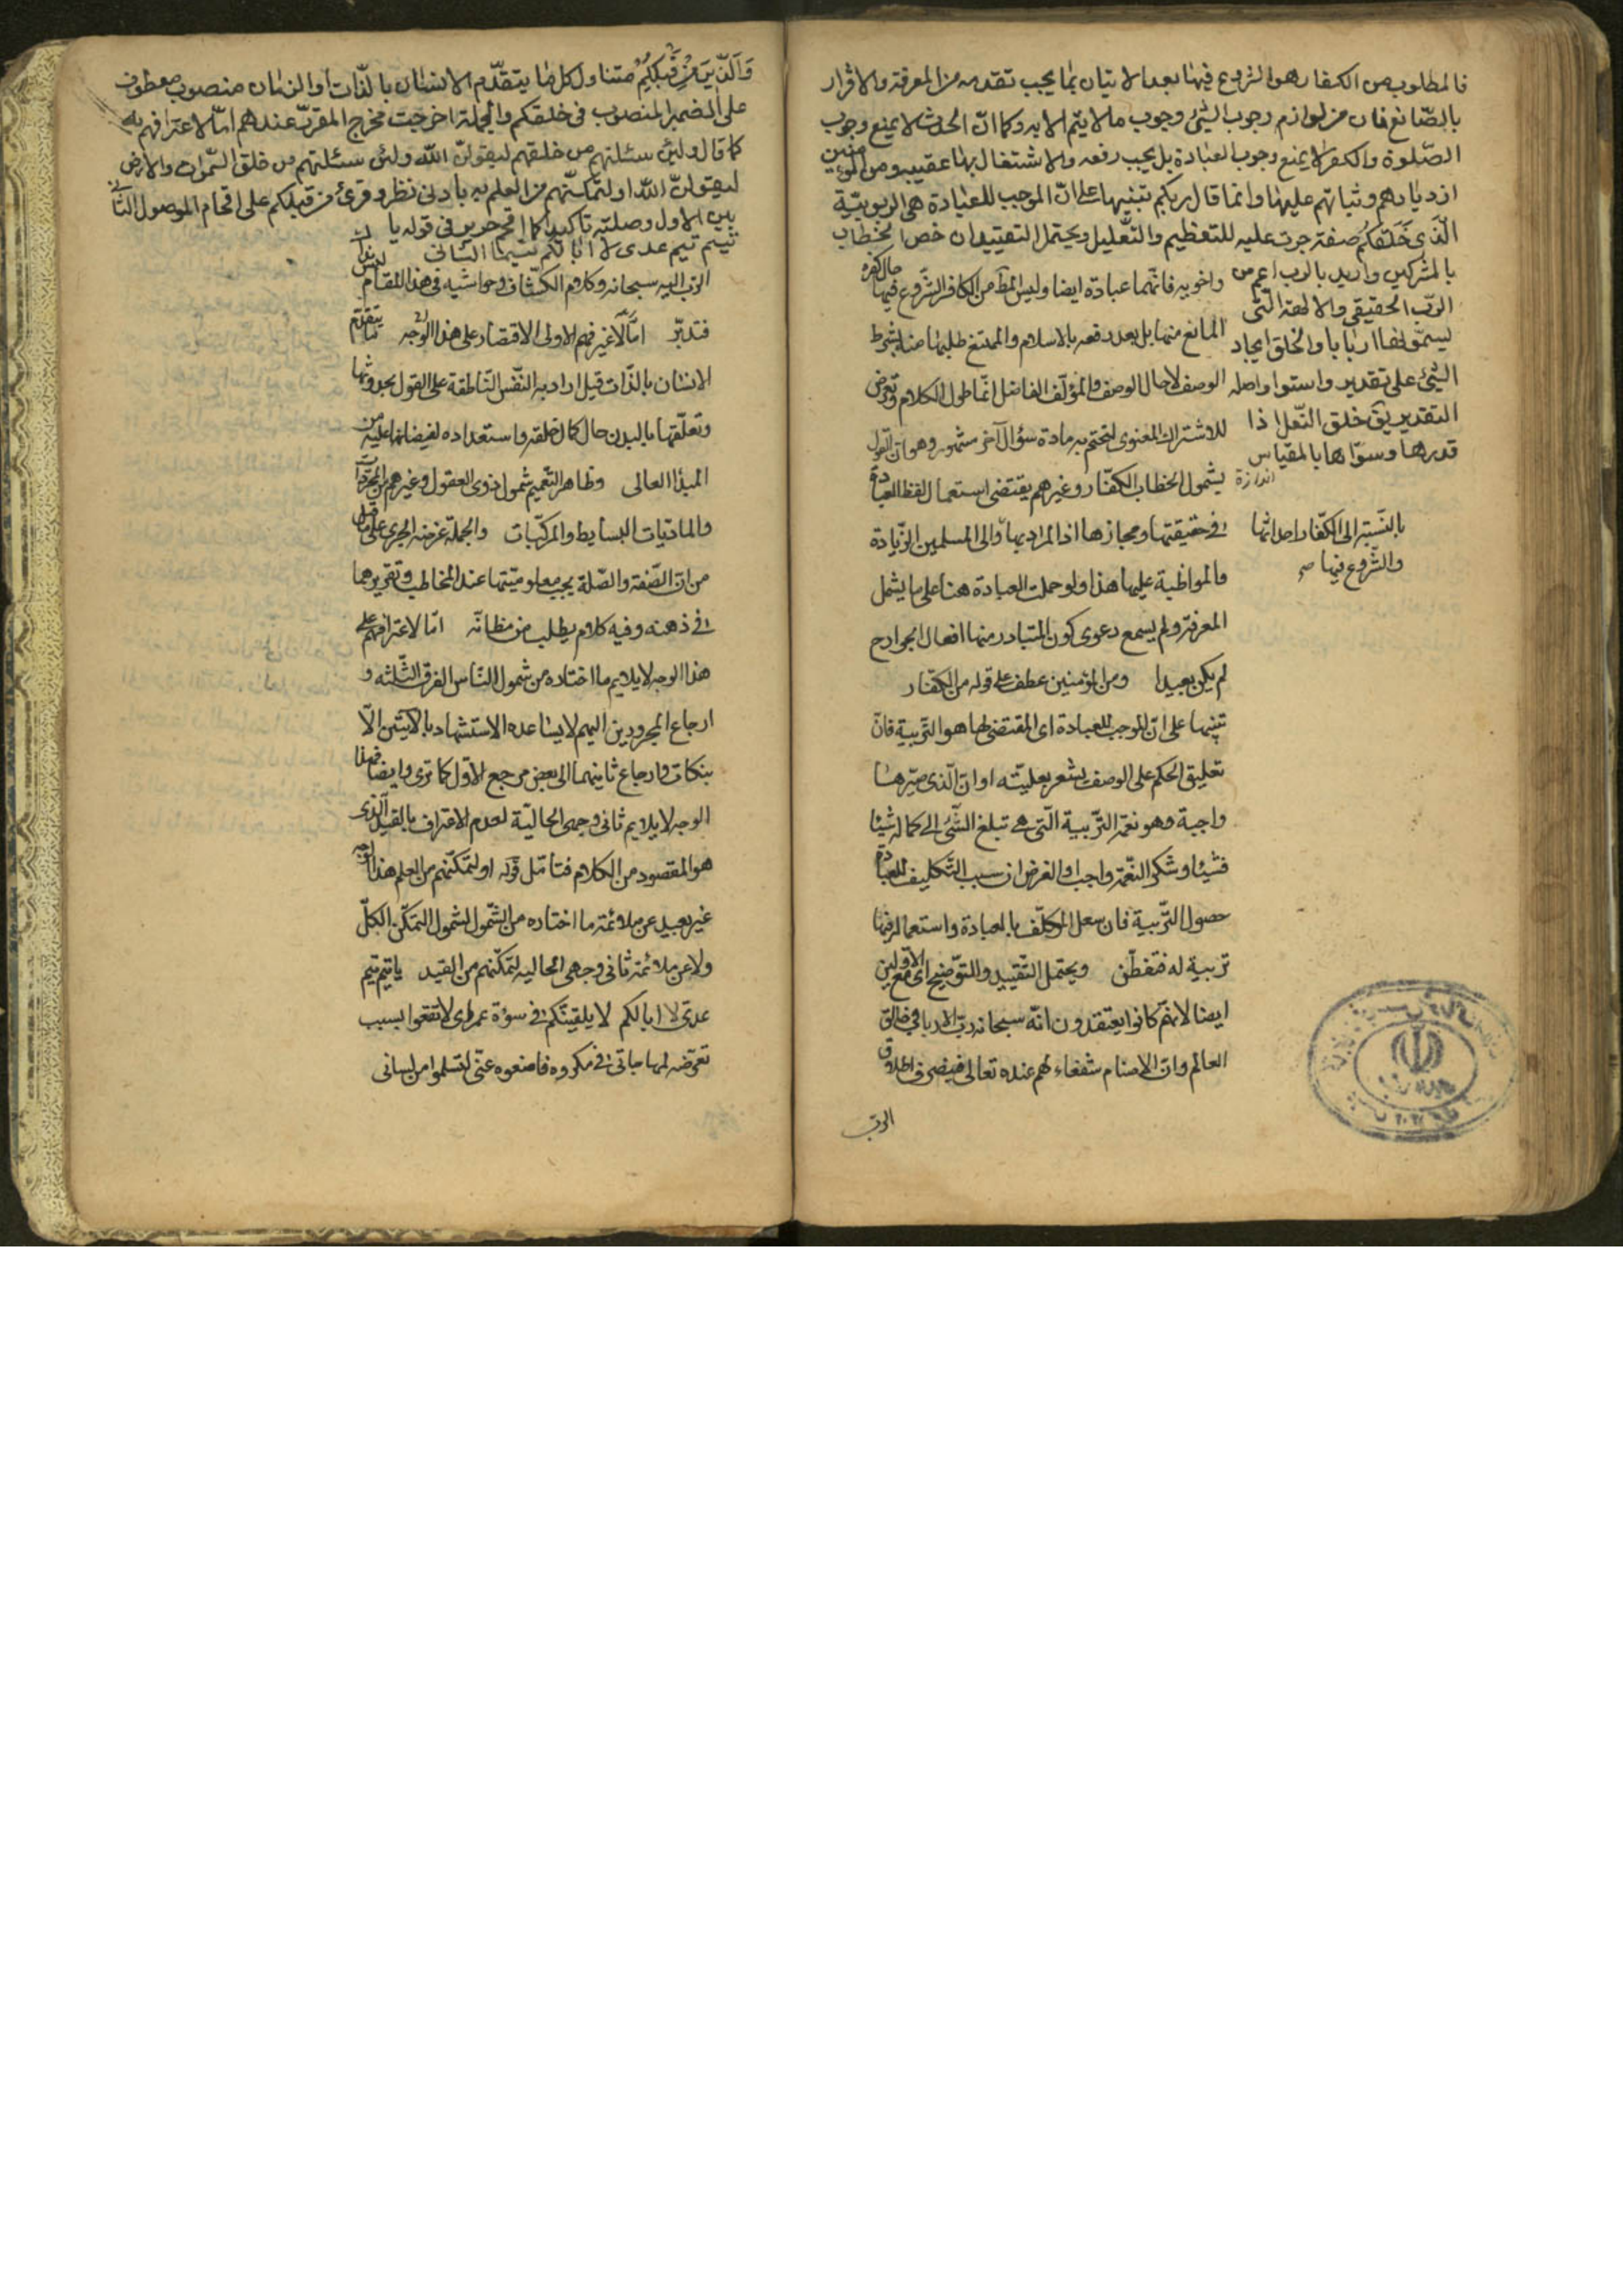 فالمطلوب من الكفار هو الشروع فيها بعد الاتيان بما يجب تقديمه من المعرفة والاقرار
بالصّانع فان من لوازم وجوب الشئ وجوب ما لا يتم الا به وكما انّ الحدث لا يمنع وجوب
الصّلوة والكفر لا يمنع وجوب العبادة بل يجب رفعه والاشتغال بها عقيبه ومن المؤمنين
ازديادهم وثباتهم عليها وانما قال ربكم تنبيها على انّ الموجب للعبادة هى الربوبيّة
الّذى خَلَقَكُم صفة جرت عليه للتعظيم والتّعليل ويحتمل التقييد ان خص الخطاب
بالمشركين واريد بالرب اعم من
الربّ الحقيقى والالهة الّتى
يسمّونها اربابا والخلق ايجاد
الشئ على تقدير واستواء واصله
التقدير يق خلق النّعل اذا
قدرها وسوّاها بالمقياس
اندازة
واخويه فانّهما عبادة ايضا وليس المط من الكافر الشّروع فيها حال كفره
المانع منها بل بعد رفعه بالاسلام والممتنع طلبها منه بشرط
الوصف لا حال الوصف والمؤلف الفاضل انّما طول الكلام وتعرض
للاشتراك المعنوى لتختم به مادة سؤال آخر ستمّوه وهو ان القول
بشمول الخطاب الكفّار وغيرهم يقتضى استعمال لفظ العبادة
فى حقيقتها ومجازها اذ المراد بها والى المسلمين الزّيادة
بالنّسبة الى الكفّار احداثها
والشّروع فيها صح
والمواظبة عليها هذا ولو حملت العبادة هنا على ما يشمل
المعرفة ولم يسمع دعوى كون المتبادر منها افعال الجوارح
لم يكن بعيدا ومن المؤمنين عطف على قوله من الكفّار
تنبيها على انّ الموجب للعبادة اى المقتضى لها هو التّربية فانّ
تعليق الحكم على الوصف يشعر بعليّته او ان الّذى صيّرها
واجبة وهو نعمة التّربية الّتى هى تبلغ الشّئ الى كماله شيئا
فشيئا وشكر النّعمة واجب والغرض ان سبب التّكليف للعبادة
حصول التّربية فان سعد المكلّف بالعبادة واستعماله فيها
تربية له فتفطّن ويحتمل التّقييد والتّوضيح اى مع الاوّلين
ايضا لانهم كانوا يعتقدون انّه سبحانه ربّ الارباب خالق
العالم وانّ الاصنام شفعاء لهم عنده تعالى فيصرف اطلاق
الربّ
وَالّذينَ مِن قَبلِكُم متناول كل ما يتقدّم الانسان بالذّات او الزمان منصوب معطوف
على الضمير المنصوب فى خلقكم والجملة اخرجت مخرج المقرّر عندهم امّا لاعترافهم به
كما قال ولئن سئلتهم من خلقهم ليقولنّ اللّه ولئن سئلتهم من خلق السّموات والارض
ليقولنّ اللّه او لتمكّنهم من العلم به بادنى نظر وقرئ من قبلكم على اقحام الموصول الثّانى
بين الاول وصلته تاكيدا كما اقحم جرير فى قوله يا
تيم تيم عدى لا ابا لكم تيما الثانى
الربّ اليه سبحانه وكلام الكشّاف وحواشيه فى هذا المقام
فتدبّر امّا لا غير فهم الاولى الاقتصار على هذا الوجه ما يتقدّم
الانسان بالذّات قيل اراد به النّفس النّاطقة على القول بحدوثها
وتعلّقها بالبدن حال كمال خلقه واستعداده لفيضانها عليه من
المبدأ العالى وظاهر التّعميم شمول ذوى العقول وغيرهم من المجرّدات
والماديّات البسايط والمركّبات والجملة غرضه الجرى على ما قيل
من انّ الصّفة والصّلة يجب معلوميّتها عند المخاطب وتقريرهما
فى ذهنه وفيه كلام يطلب من مظانّه امّا لاعترافهم على
هذا الوجه لا يلايم ما اختاره من شمول النّاس الفرق الثّلثة و
ارجاع المجرورين اليهم لا يساعده الاستشهاد بالآيتين الّا
بتكلف وارجاع ثانيهما الى بعض مرجع الاوّل كما ترى وايضا فهذا
الوجه لا يلايم ثانى وجهى الحاليّة لعدم الاقتراف بالقيد الّذى
هو المقصود من الكلام فتامّل قوله او لتمكّنهم من العلم هذا الوجه
غير بعيد عن ملائمة ما اختاره من الشّمول لشمول التمكّن الكلّ
ولا عن ملائمة ثانى وجهى الحاليه لتمكّنهم من القيد يا تيم تيم
عدىّ لا ابا لكم لا يلقينّكم فى سوءة عمر اى لا تقعوا بسبب
تعرّضه لمهاجاتى فى مكروه فامنعوه عنّى لتسلموا من لسانى